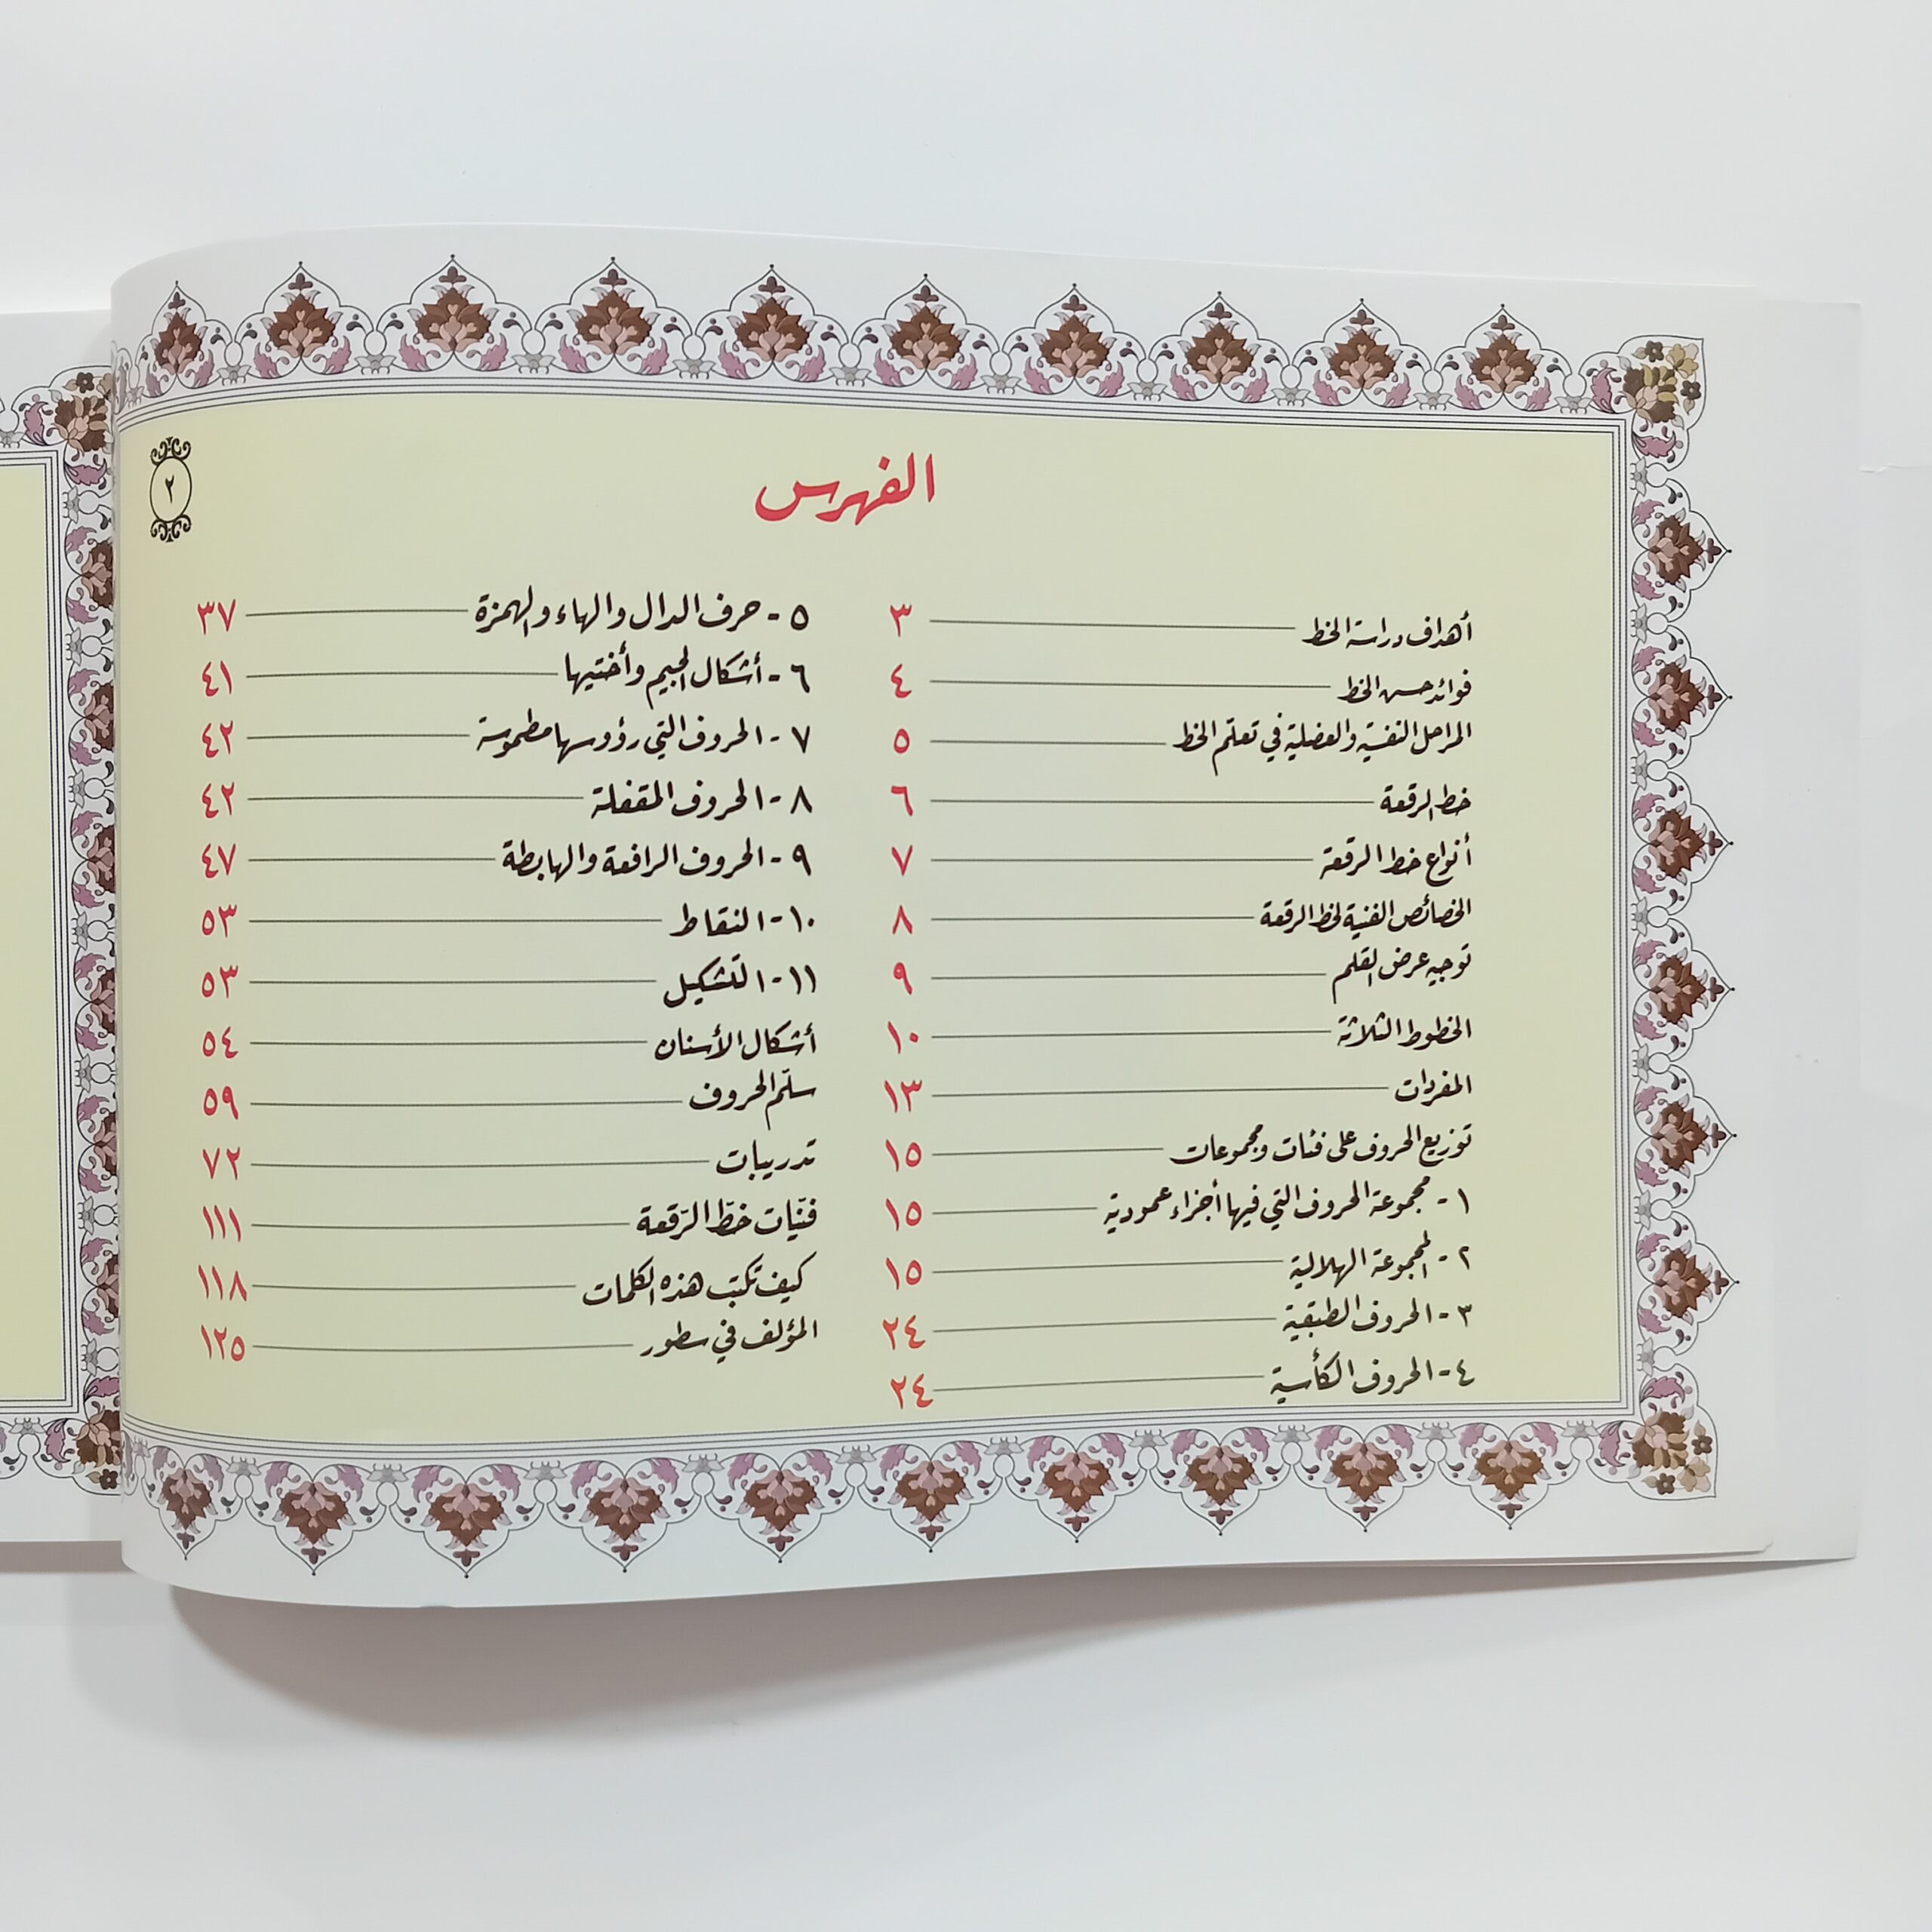 ٢
الفهرس
أهداف دراسة الخط ٣
فوائد حسن الخط ٤
المراحل النفسية والعضلية في تعلّم الخط ٥
خط الرقعة ٦
أنواع خط الرقعة ٧
الخصائص الفنية لخط الرقعة ٨
توجيه عرض القلم ٩
الخطوط الثلاثة ١٠
المفردات ١٣
توزيع الحروف على فئات ومجموعات ١٥
١- مجموعة الحروف التي فيها أجزاء عمودية ١٥
٢- المجموعة الهلالية ١٥
٣- الحروف الطبقية ٢٤
٤- الحروف الكأسية ٢٤
٥- حرف الدال والهاء والهمزة ٣٧
٦- أشكال الجيم وأختيها ٤١
٧- الحروف التي رؤوسها مطموسة ٤٢
٨- الحروف المقفلة ٤٢
٩- الحروف الرافعة والهابطة ٤٧
١٠- النقاط ٥٣
١١- التشكيل ٥٣
أشكال الأسنان ٥٤
سلّم الحروف ٥٩
تدريبات ٧٢
فنّيات خطّ الرّقعة ١١١
كيف تكتب هذه الكلمات ١١٨
المؤلف في سطور ١٢٥